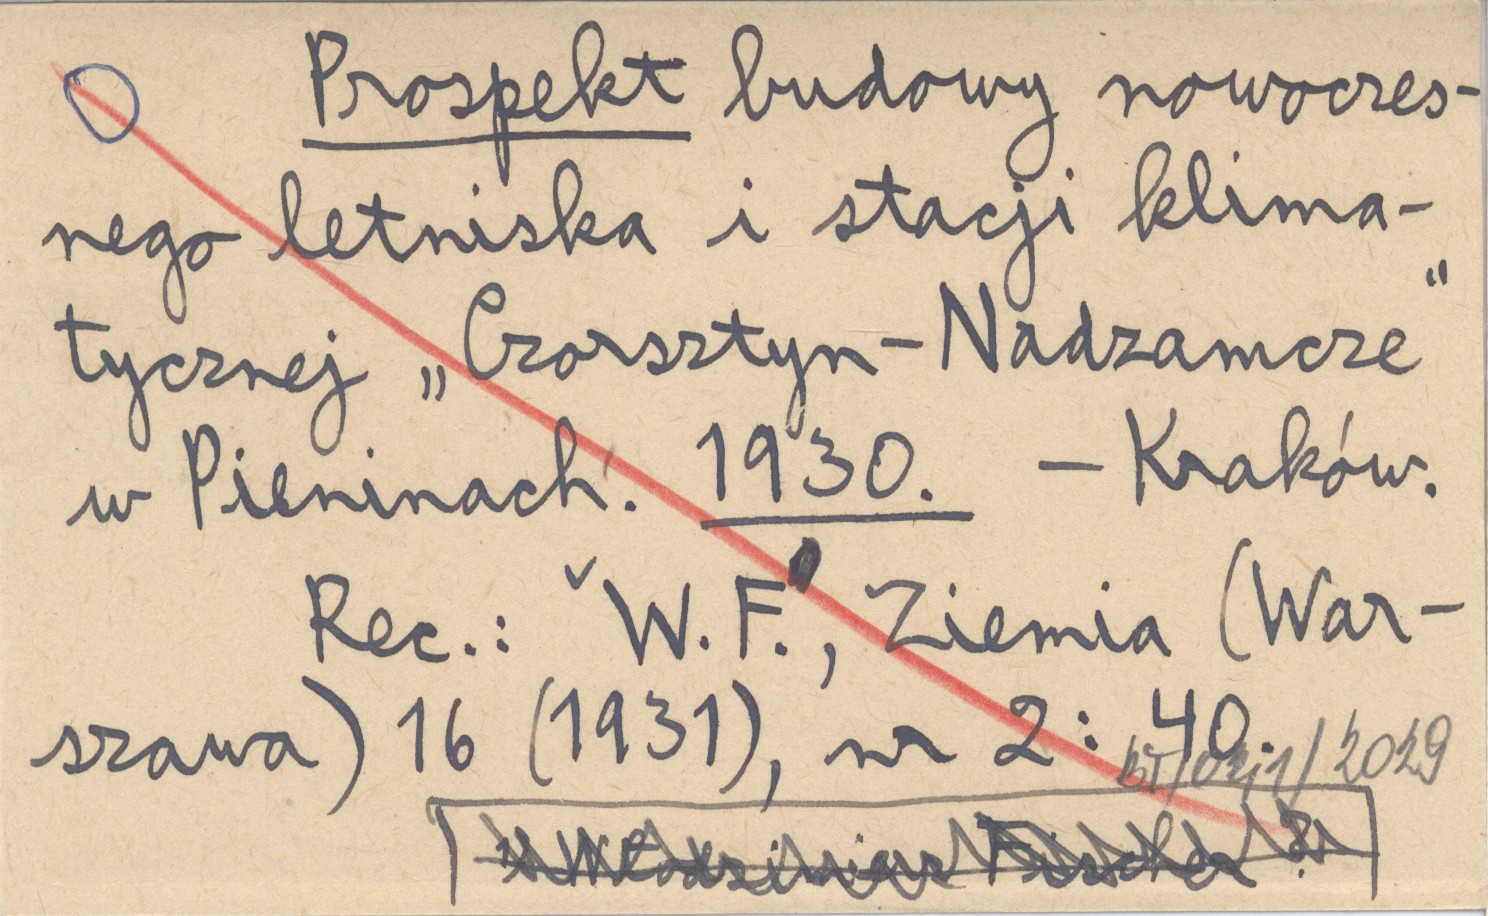 Prospekt budowy nowoczes-
nego letniska i stacji klima-
tycznej „Czorsztyn-Nadzamcze"
w Pieninach. 1930. — Kraków.
Rec.: W. F., Ziemia (War-
szawa) 16 (1931), nr 2: 40.
/2029
Włodzimierz Fischer ?